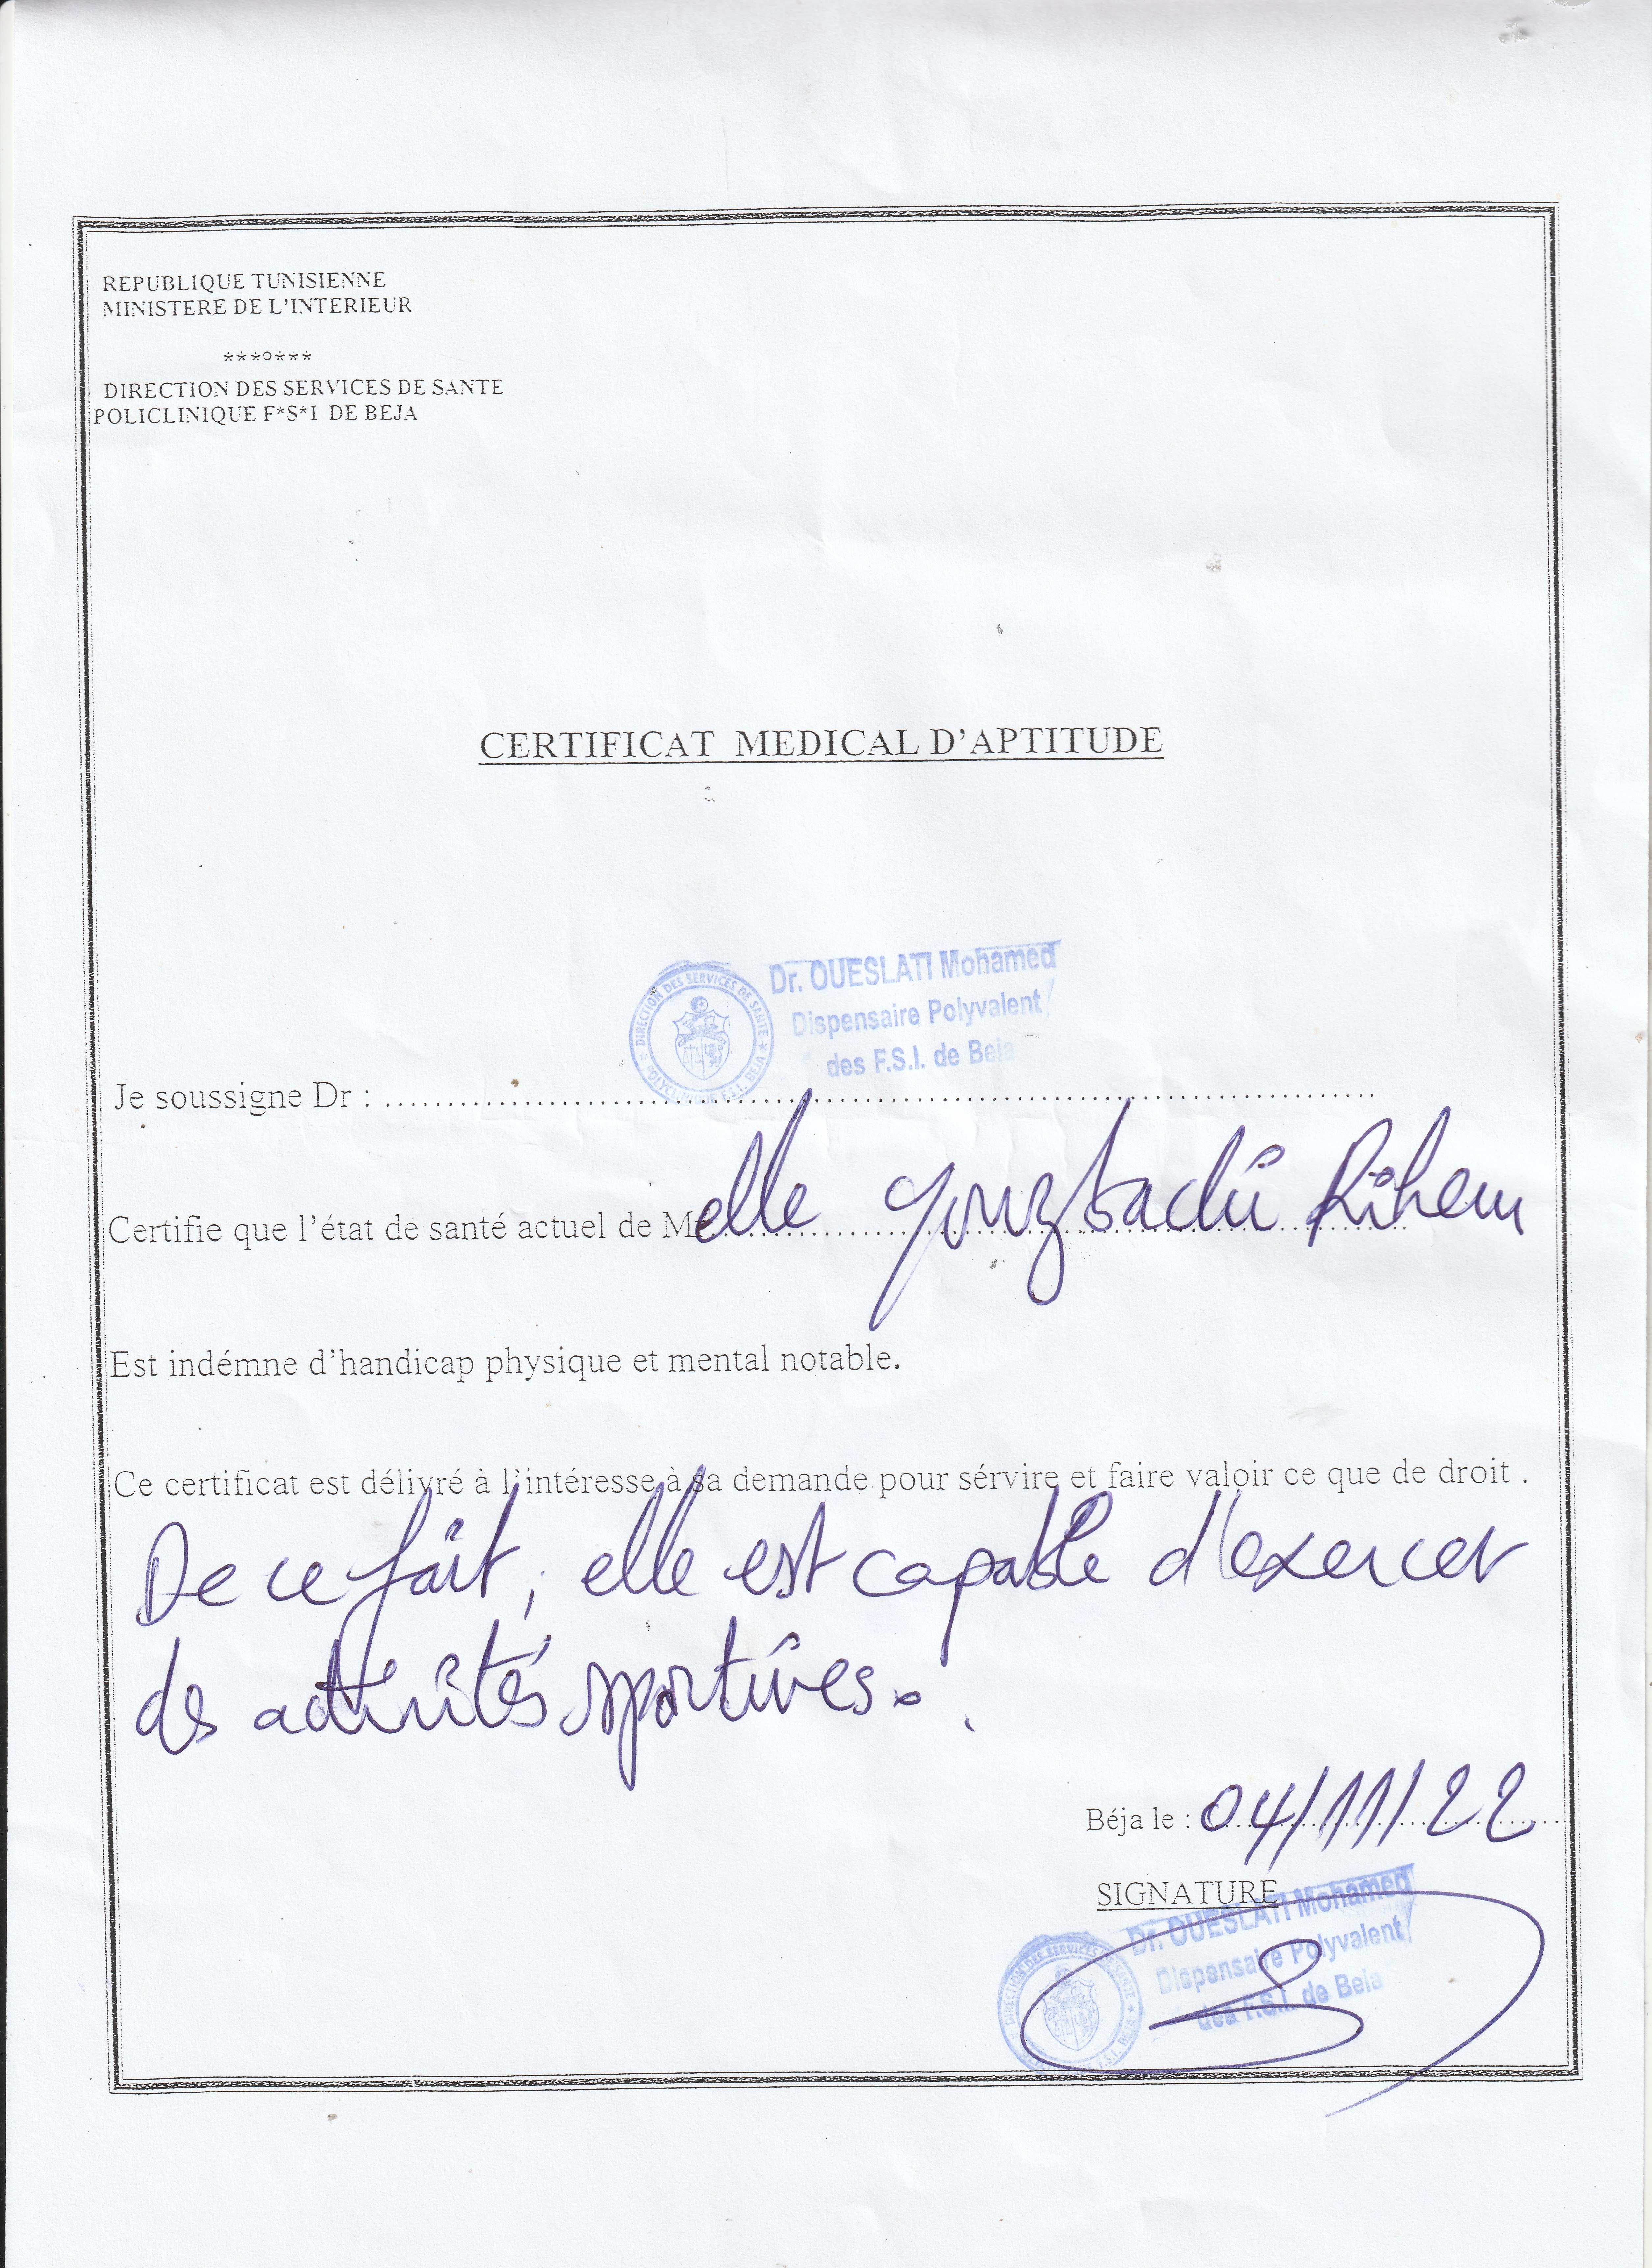 REPUBLIQUE TUNISIENNE
MINISTERE DE L'INTERIEUR
***o***
DIRECTION DES SERVICES DE SANTE
POLICLINIQUE F*S*I DE BEJA
CERTIFICAT MEDICAL D'APTITUDE
DIRECTION DES SERVICES DE SANTE
POLYCLINIQUE F.S.I. BEJA
Dr. OUESLATI Mohamed
Dispensaire Polyvalent
des F.S.I. de Beja
Je soussigne Dr :
Certifie que l'état de santé actuel de Melle Youzbachi Rihem
Est indémne d'handicap physique et mental notable.
Ce certificat est délivré à l'intéresse à sa demande pour sérvire et faire valoir ce que de droit .
De ce fait, elle est capable d'exercer
des activités sportives.
Béja le : 04/11/22
SIGNATURE
DIRECTION DES SERVICES DE SANTE
F.S.I. BEJA
Dr. OUESLATI Mohamed
Dispensaire Polyvalent
des F.S.I. de Beja